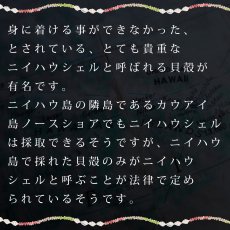 身に着ける事ができなかった、
とされている、とても貴重な
ニイハウシェルと呼ばれる貝殻が
有名です。
ニイハウ島の隣島であるカウアイ
島ノースショアでもニイハウシェル
は採取できるそうですが、ニイハウ
島で採れた貝殻のみがニイハウ
シェルと呼ぶことが法律で定め
られているそうです。
HAWAII